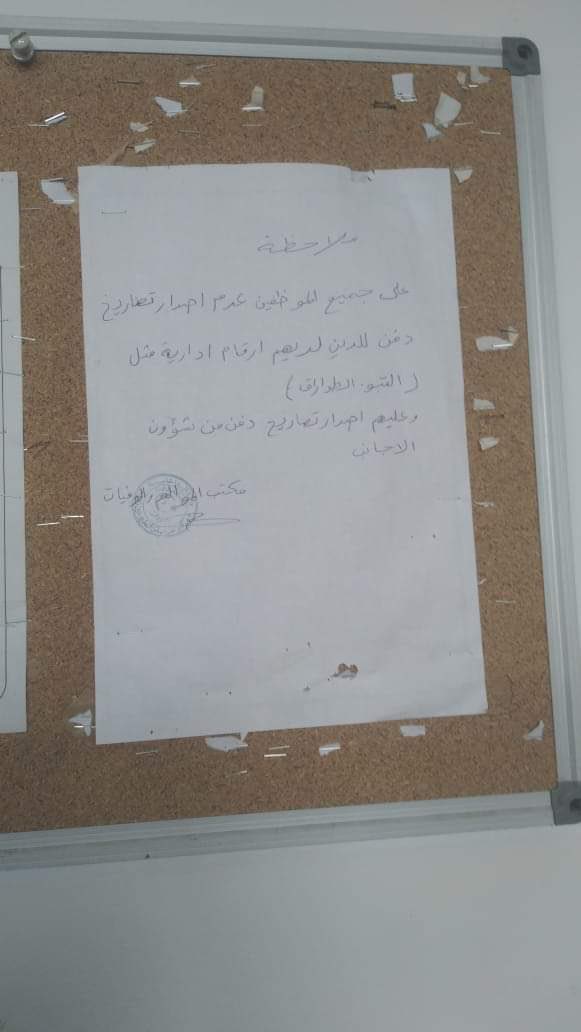 ملاحظة
على جميع الموظفين عدم اصدار تصاريح
دفن للذين لديهم ارقام ادارية مثل
(التبو. الطوارق)
وعليهم اصدار تصاريح دفن من شؤون
الاجانب
مكتب المواليد والوفيات